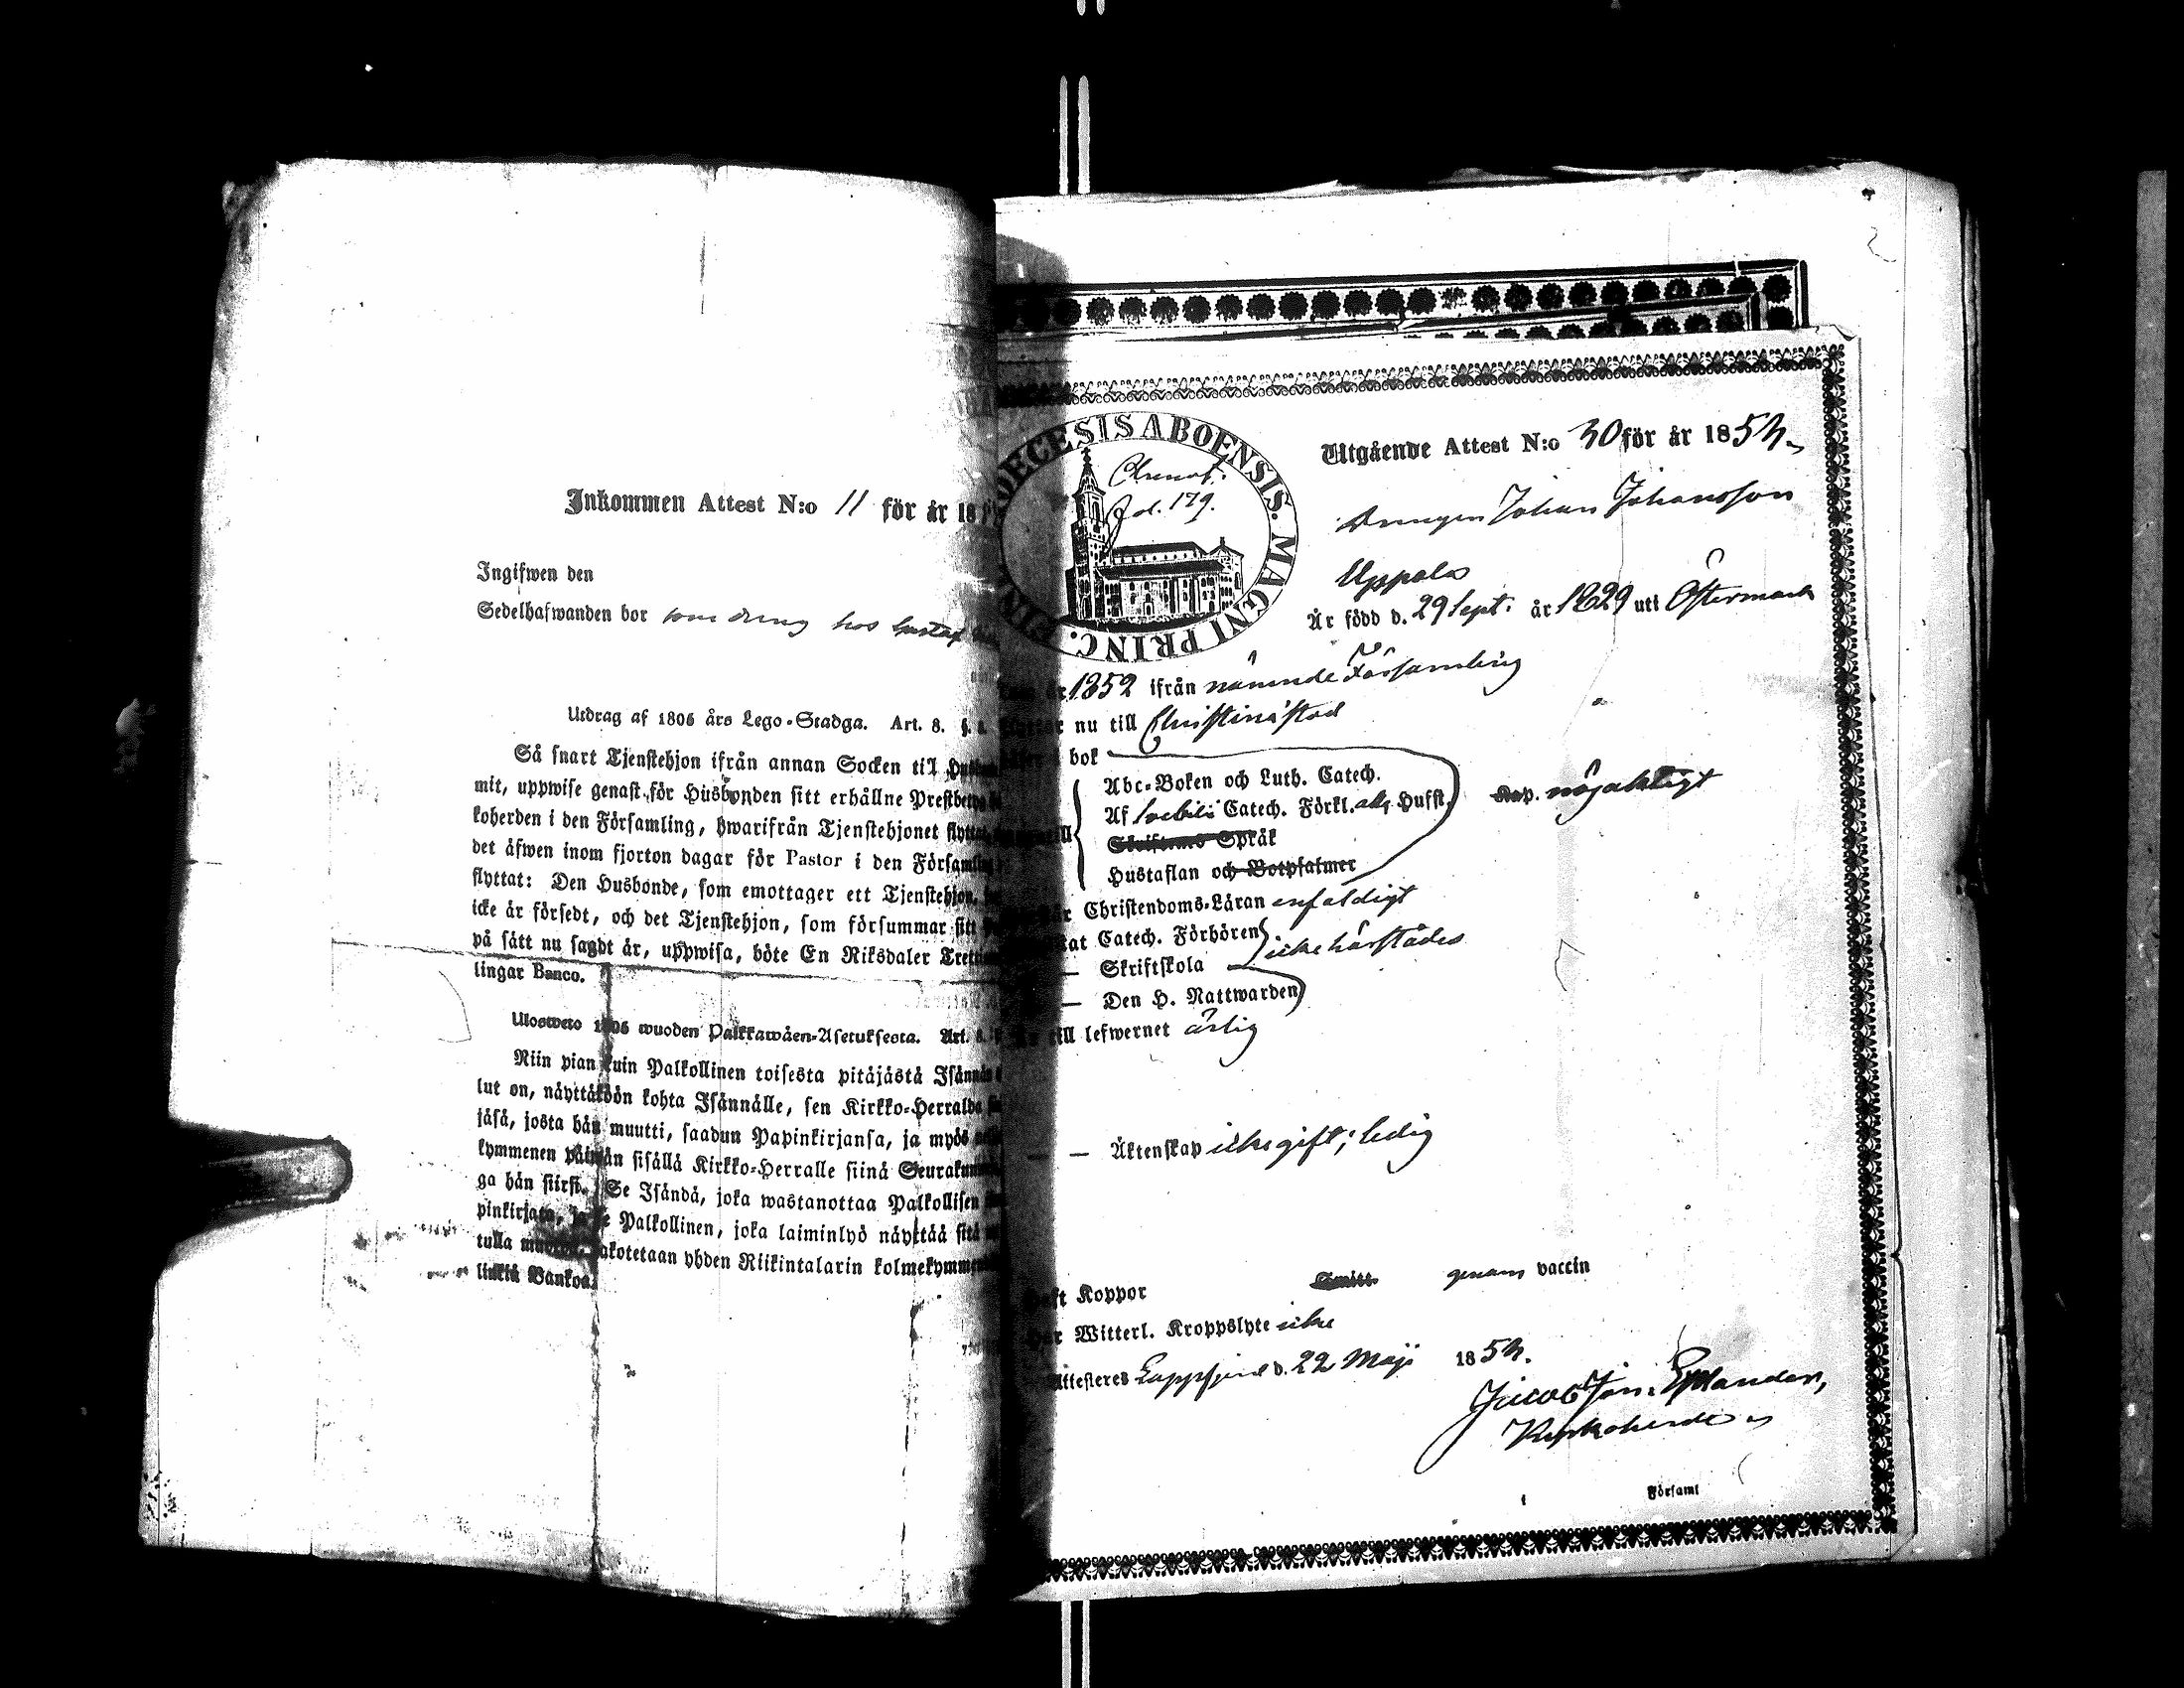 Inkommen Attest N:o 11 för år 18
Ingifwen den
Sedelhafwanden bor som dreng hos Gustaf
Utdrag af 1805 års Lego-Stadga. Art. 8. §. 1.
Så snart Tjenstehjon ifrån annan Socken til
mit, uppwise genast för Husbonden sitt erhållne
koherden i den Församling, hwarifrån Tjenstehjonet
det äfwen inom fjorton dagar för Pastor i den
flyttat: Den Husbonde, som emottager ett Tjenstehjon,
icke är försedt, och det Tjenstehjon, som försummar sitt
på sätt nu sagdt är, uppwisa, böte En Riksdaler
lingar Banco.
Uloswето 1805 wuoden Palkkawäen-Asetuksesta. Art. 8.
Niin pian kuin Palkollinen toisesta pitäjästä
lut on, näyttäköön kohta Isännälle, sen Kirkko-Herralda
jäsä, josta hän muutti, saadun Papinkirjansa, ja myös
kymmenen päiwän sisällä Kirkko-Herralle siinä
ga hän siirsi. Se Isändä, joka wastanottaa Palkollisen
pinkirjata, ja se Palkollinen, joka laiminlyö näyttää sitä
tulla sakotetaan yhden Riikintalarin
linkiä Bankoa.
DIOECESIS ABOENSIS. MAGNI PRINC. FINL.
fol. 179.
Utgående Attest N:o 30 för år 1854.
Drengen Johan Johansson
Uppala
Är född d. 29 Sept. år 1829 uti Östermark
1852 ifrån nämnde Församling
nu till Christinæstad
bok
Abc-Boken och Luth. Catech.
Af Svebilii Catech. Förkl. Husst. Kap. nöjaktigt
Skriftenes Språk
Hustaflan och Botpsalmer
Christendoms-Läran enfaldigt
Catech. Förhören
icke härstädes
— Skriftskola
— Den H. Nattwarden
till lefwernet ärlig
— — Äktenskap icke gift; ledig
Haft Koppor Smitt. genom vaccin
Har Witterl. Kroppslyte icke
Attesteres Lappfjerd d. 22 Maji 1854.
Jacob Jon. Estlander,
Kyrkoherde
Församl